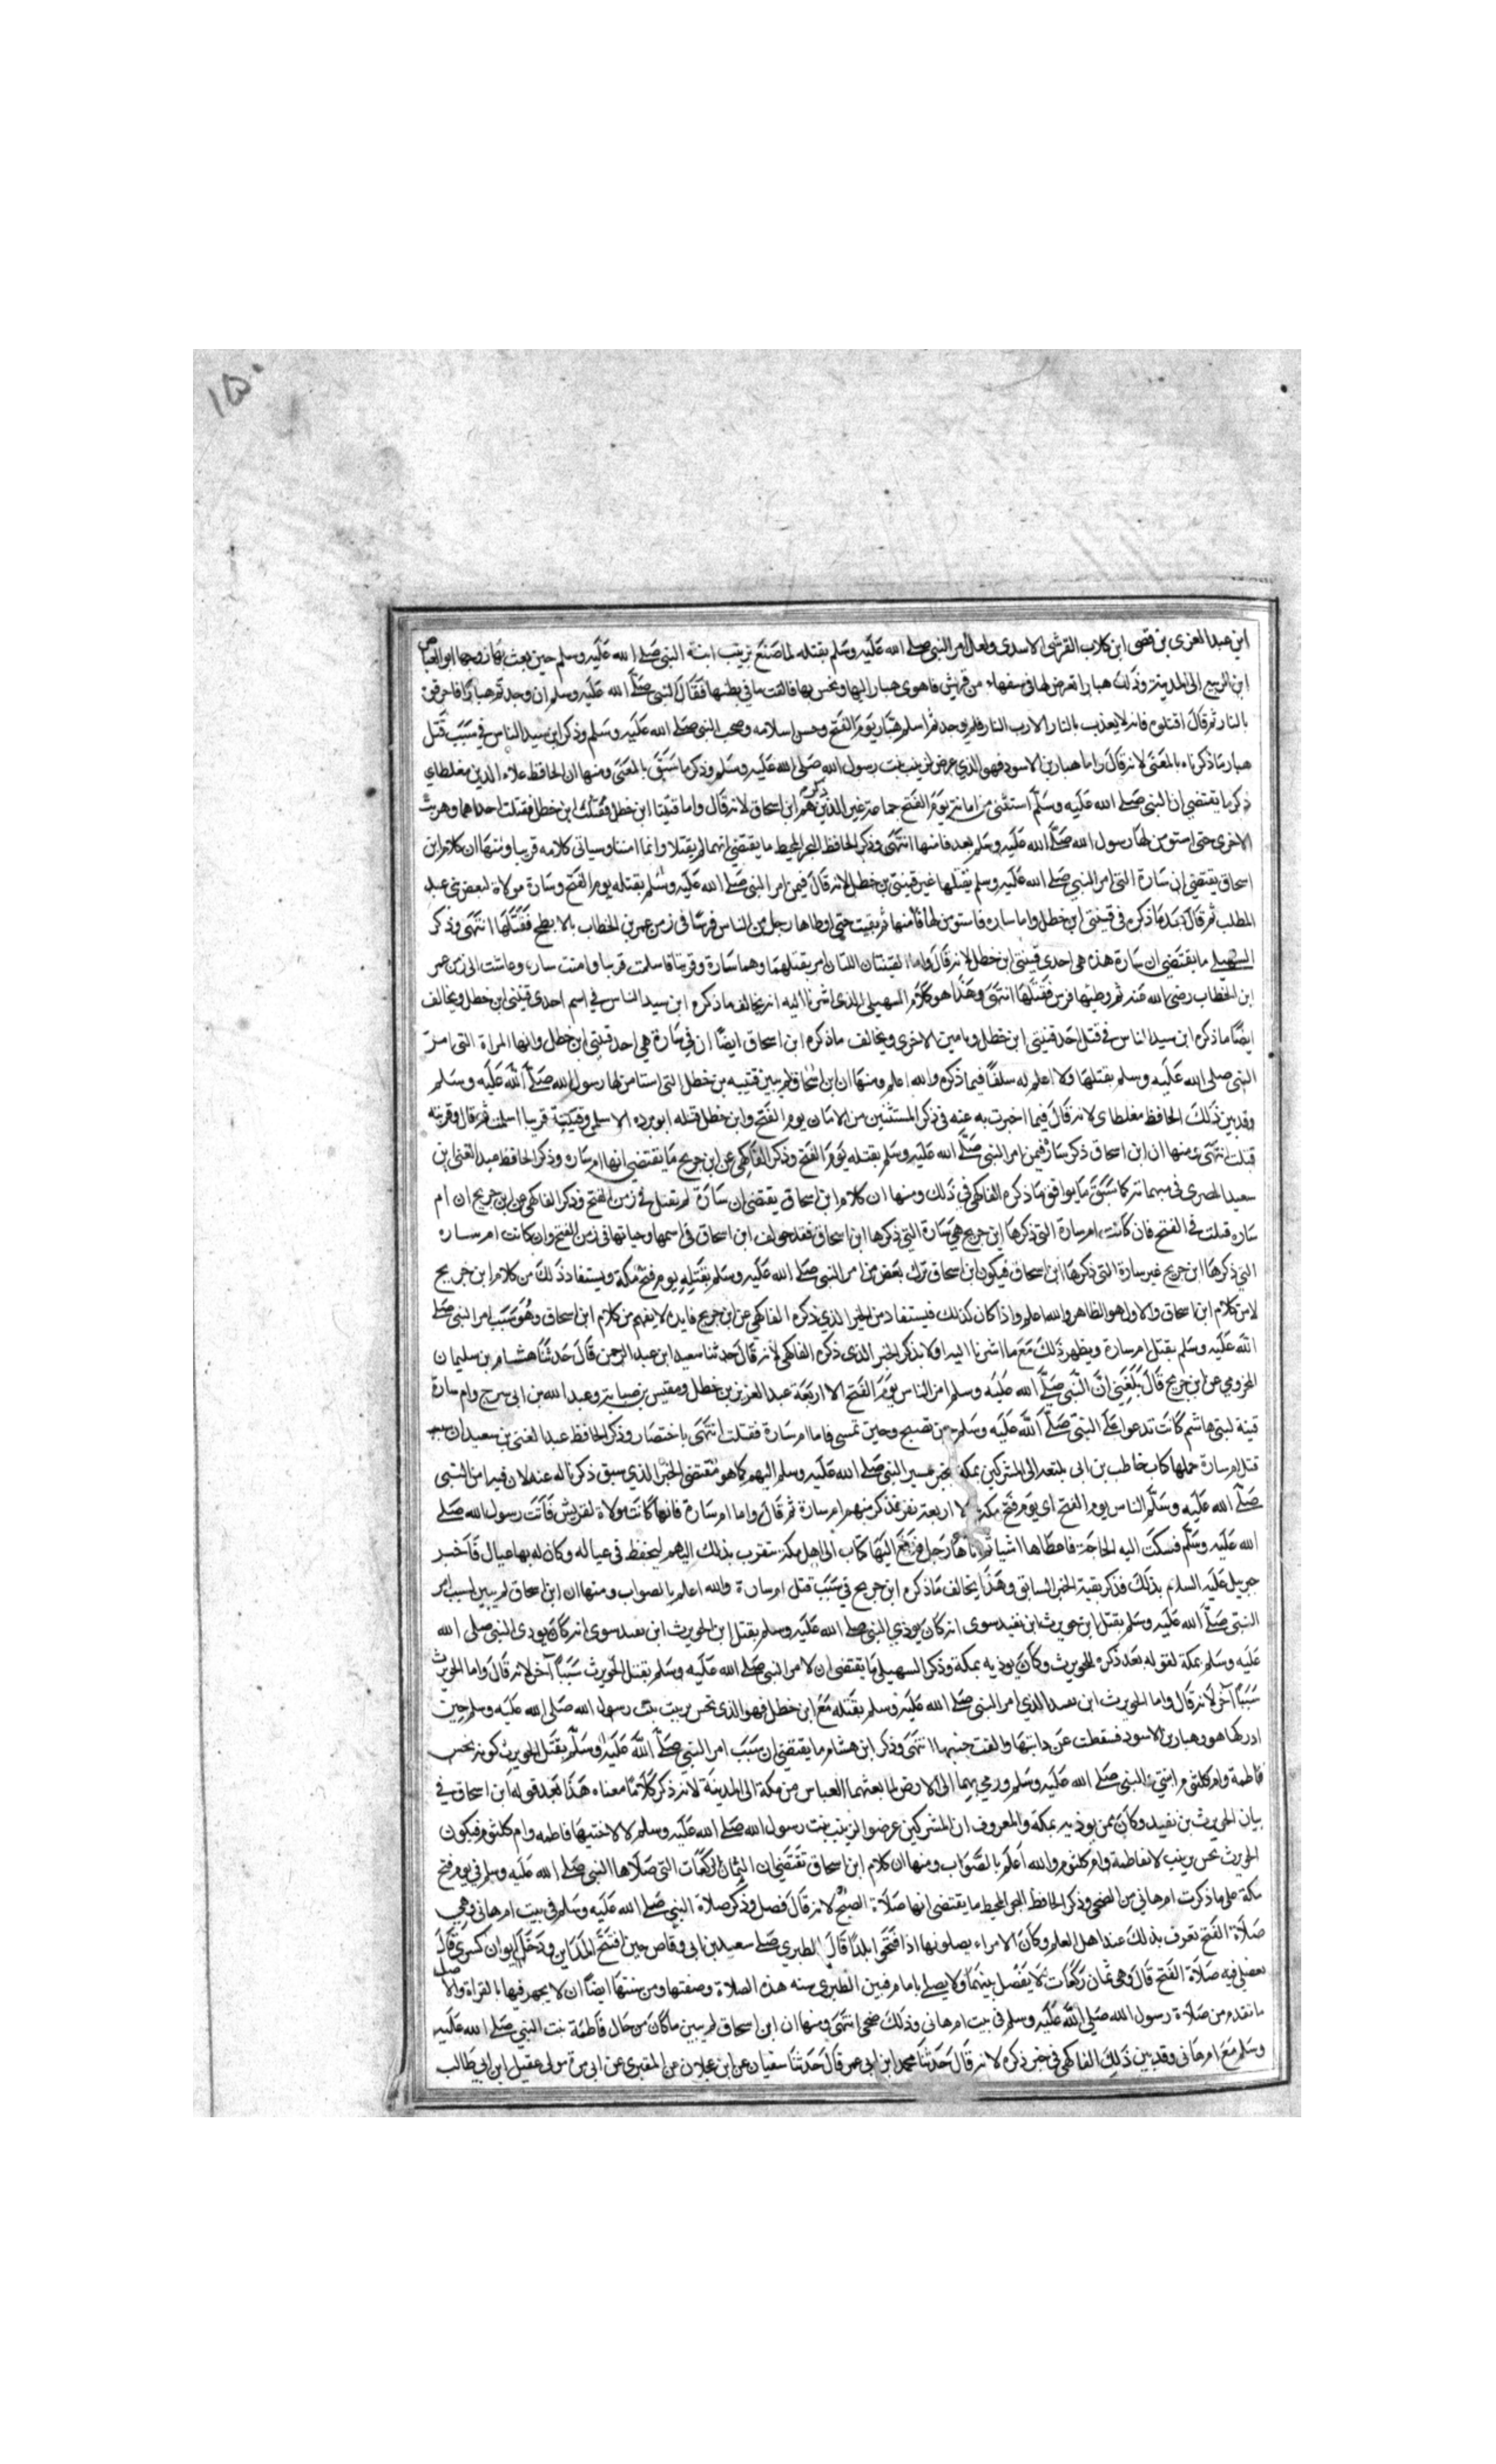 ١٥٠
ابن عبد العزى بن قصى ابن كلاب القرشى الاسدى ولعل امر النبى صلى الله عليه وسلم بقتله لما صنع بزينب ابنة النبى صلى الله عليه وسلم حين بعث بها زوجها ابو العاص
ابن الربيع الى المدينة وذلك هبار تعرض لها فى سفهاء من قريش فاهوى هبار اليها ونخس بها فالقت ما فى بطنها فقال النبى صلى الله عليه وسلم ان وجدتم هبارا فاحرقوه
بالنار ثم قال اقتلوه فانه لا يعذب بالنار الا رب النار فلم يوجد ثم اسلم هبار يوم الفتح وحسن اسلامه وصحب النبى صلى الله عليه وسلم وذكر ابن سيد الناس فى سبب قتل
هبار ما ذكرناه بالمعنى لانه قال واما هبار بن الاسود فهو الذى عرض لزينب بنت رسول الله صلى الله عليه وسلم وذكر ما سبق بالمعنى ومنها ان الحافظ علاء الدين مغلطاي
ذكر ما يقتضي ان النبى صلى الله عليه وسلم استثنى من امانه يوم الفتح جماعة غير الذين ذكرهم ابن اسحاق لانه قال واما قنيتا ابن خطل فقتلت احداهما وهربت
الاخرى حتى استومن لها رسول الله صلى الله عليه وسلم بعد فامنها انتهى وذكر الحافظ البحر المحيط ما يقتضي انهما لم يقتلا وانما امنتا وسياتى كلامه قريبا ومنها ان كلام ابن
اسحاق يقتضي ان سارة التى امر النبى صلى الله عليه وسلم بقتلها غير قينتى بن خطل لانه قال فيمن امر النبى صلى الله عليه وسلم بقتله يوم الفتح وسارة مولاة لبعض بنى عبد
المطلب ثم قال بعد ما ذكره فى قينتى ابن خطل واما سارة فاستومن لها فامنها ثم بقيت حتى اوطاها رجل من الناس فرسا فى زمن عمر بن الخطاب بالابطح فقتلها انتهى وذكر
السهيلى ما يقتضى ان سارة هذه هى احدى قينتى ابن خطل لانه قال واما القينتان اللتان امر بقتلهما وهما سارة وفرتنا فاسلمت فرتنا وامنت سارة وعاشت الى زمن عمر
ابن الخطاب رضى الله عنه ثم وطيها فرس فقتلها انتهى وهذا هو كلام السهيلى الذى اشرنا اليه انه يخالف ما ذكره ابن سيد الناس فى اسم احدى قينتى ابن خطل ويخالف
ايضا ما ذكره ابن سيد الناس فى قتل احد قنيتى ابن خطل وبامين الاخرى ويخالف ما ذكره ابن اسحاق ايضا ان فى سارة هى احد قينتى ابن خطل وانها المراة التى امر
النبى صلى الله عليه وسلم بقتلها ولا اعلم له سلفا فيما ذكره والله اعلم ومنها ان ابن اسحاق لم يبين قنيبه بن خطل التى استامن لها رسول الله صلى الله عليه وسلم
وقد بين ذلك الحافظ مغلطاى لانه قال فيما اخبرت به عنه فى ذكر المستثنين من الامان يوم الفتح وابن خطل قتله ابو برده الاسلى وقينتية قريبا اسلمت ثم قال وقرينه
قتلت انتهى ومنها ان ابن اسحاق ذكر سارة فيمن امر النبى صلى الله عليه وسلم بقتله يوم الفتح وذكر الفاكهى عن ابن جريح ما يقتضي انها ام ساره وذكر الحافظ عبد الغنى ابن
سعيد المصرى فى مبهماته كما سبق ما يوافق ما ذكره الفاكهى فى ذلك ومنها ان كلام ابن اسحاق يقتضى ان سارة لم تقتل فى زمن الفتح وذكر الفاكهى عن ابن جريح ان ام
ساره قتلت فى الفتح فان كانت ام سارة التى ذكرها ابن جريح هى سارة التى ذكرها ابن اسحاق فقد خولف ابن اسحاق فى اسمها وحياتها فى زمن الفتح وان كانت ام ساره
التى ذكرها ابن جريح غير سارة التى ذكرها ابن اسحاق فيكون ابن اسحاق ترك بعض من امر النبى صلى الله عليه وسلم بقتله يوم فتح مكة ويستفاد ذلك من كلام ابن جريح
لا من كلام ابن اسحاق والاول هو الظاهر والله اعلم واذا كان كذلك فيستفاد من الخبر الذى ذكره الفاكهى عن ابن جريح فايدة لا يفهم من كلام ابن اسحاق وهو سبب امر النبى صلى
الله عليه وسلم بقتل ام سارة ويظهر ذلك مع ما اشرنا اليه اولا بذكر الخبر الذى ذكره الفاكهى لانه قال حدثنا سعيد ابن عبد الرحمن قال حدثنا هشام بن سليمان
المخزومي عن ابن جريح قال بلغني ان النبى صلى الله عليه وسلم امن الناس يوم الفتح الا اربعة عبد العزيز بن خطل ومقيس بن ضبابة وعبد الله بن ابى سرح وام سارة
قينة لبنى هاشم كانت تدعوا على النبى صلى الله عليه وسلم حين تصبح وحين تمسى فاما ام سارة فقتلت انتهى باختصار وذكر الحافظ عبد الغنى بن سعيد ان سبب
قتل ام سارة حملها كتاب خاطب بن ابى بلتعه الى المشركين بمكة بخبر مسير النبى صلى الله عليه وسلم اليهم كما هو مقتضى الخبر الذى سبق ذكرنا له عنه لان فيه امن النبى
صلى الله عليه وسلم الناس يوم الفتح اى يوم فتح مكة الا اربعة نفر فذكر منهم ام سارة ثم قال واما ام سارة فانها كانت مولاة لقريش فاتت رسول الله صلى
الله عليه وسلم فسكت اليه الحاجة فاعطاها اشيا ثم اتاها رجل فدفع اليها كتاب الى اهل مكة ستقرب بذلك اليهم ليحفظ فى عياله وكان له بها عيال فاخبر
جبريل عليه السلام بذلك فذكر بقية الخبر السابق وهذا يخالف ما ذكره ابن جريح فى سبب قتل ام سارة والله اعلم بالصواب ومنها ان ابن اسحاق لم يبين لسبب امر
النبى صلى الله عليه وسلم بقتل ابن حويرث ابن نفيد سوى انه كان يوذي النبى صلى الله عليه وسلم بقتل ابن الحويرث ابن نفيد سوى انه كان يوذى النبى صلى الله
عليه وسلم بمكة لقوله بعد ذكره للحويرث وكان يوذيه بمكة وذكر السهيلى ما يقتضى ان لامر النبى صلى الله عليه وسلم بقتل الحويرث سببا آخر لانه قال واما الحويرث
سببا آخر لانه قال واما الحويرث ابن نفيد الذى امر النبى صلى الله عليه وسلم بقتله مع ابن خطل فهو الذى نخس بزينب بنت رسول الله صلى الله عليه وسلم حين
ادركها هو وهبار بن الاسود فسقطت عن دابتها والقت جنينها انتهى وذكر ابن هشام ما يقتضى ان سبب امر النبى صلى الله عليه وسلم بقتل الحويرث كونه نخس
فاطمة وام كلثوم ابنتى النبى صلى الله عليه وسلم ورمى بهما الى الارض لما بعثهما العباس من مكة الى المدينة لانه ذكر كلاما معناه هذا بعد قوله ابن اسحاق فى
بيان الحويرث بن نفيد وكان ممن يوذيه بمكة والمعروف ان المشركين عرضوا لزينب بنت رسول الله صلى الله عليه وسلم لا لاختيها فاطمه وام كلثوم فيكون
الحويرث نخس بزينب لا بفاطمة وام كلثوم والله اعلم بالصواب ومنها ان كلام ابن اسحاق تقتضى ان الثمان الركعات التى صلاها النبى صلى الله عليه وسلم فى يوم فتح
مكة على ما ذكرت ام هانى من الضحى وذكر الحافظ البحر المحيط ما يقتضى انها صلاة الصبح لانه قال فصل وذكر صلاة النبى صلى الله عليه وسلم فى بيت ام هانى وهى
صلاة الفتح تعرف بذلك عند اهل العلم وكان الامراء يصلونها اذا فتحوا بلدا قال الطبري صلى سعيد بن ابى وقاص حين افتتح المداين ودخل ايوان كسرى قال
فصلى فيه صلاة الفتح قال وهى ثمان ركعات لا يفصل بينهما ولا يصلى بامام فبين الطبرى سنه هذه الصلاة وصفتها ومن سنتها ايضا ان لا يجهر فيها بالقراة والاصل
ما تقدم من صلاة رسول الله صلى الله عليه وسلم فى بيت ام هانى وذلك ضحى انتهى ومنها ان ابن اسحاق لم يبين ما كان من حال فاطمة بنت النبى صلى الله عليه
وسلم مع ام هانى وقد بين ذلك الفاكهى فى خبر ذكره لانه قال حدثنا محمد ابن ابى عمر قال حدثنا سفيان عن ابن عجلان عن المقبرى عن ابى مرة مولى عقيل ابن ابى طالب